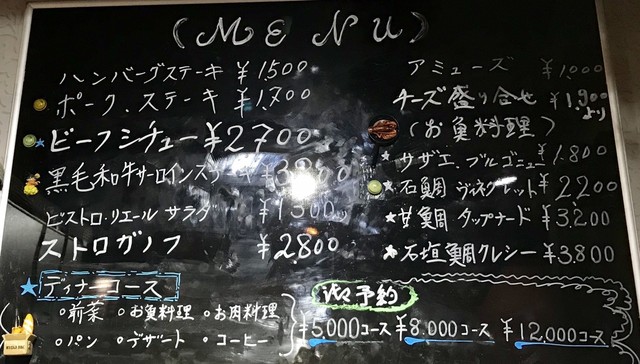 (MENU)
ハンバーグステーキ ¥1500
ポーク、ステーキ ¥1.700
ビーフシチュー ¥2700
黒毛和牛サーロインステ
ビストロ・リエール サラダ ¥1500
ストロガノフ ¥2.800
ディナーコース
○前菜 ○お魚料理 ○お肉料理
○パン ○デザート ○コーヒー
アミューズ ¥1,000
チーズ盛り合せ ¥1,900より
(お魚料理)
サザエ、ブルゴニュ ¥1.800
石鯛 ヴィネグレット ¥2,200
甘鯛 タップナード ¥3.200
石垣鯛クレシー ¥3.800
予約
¥5000コース ¥8.000コース ¥12,000コース